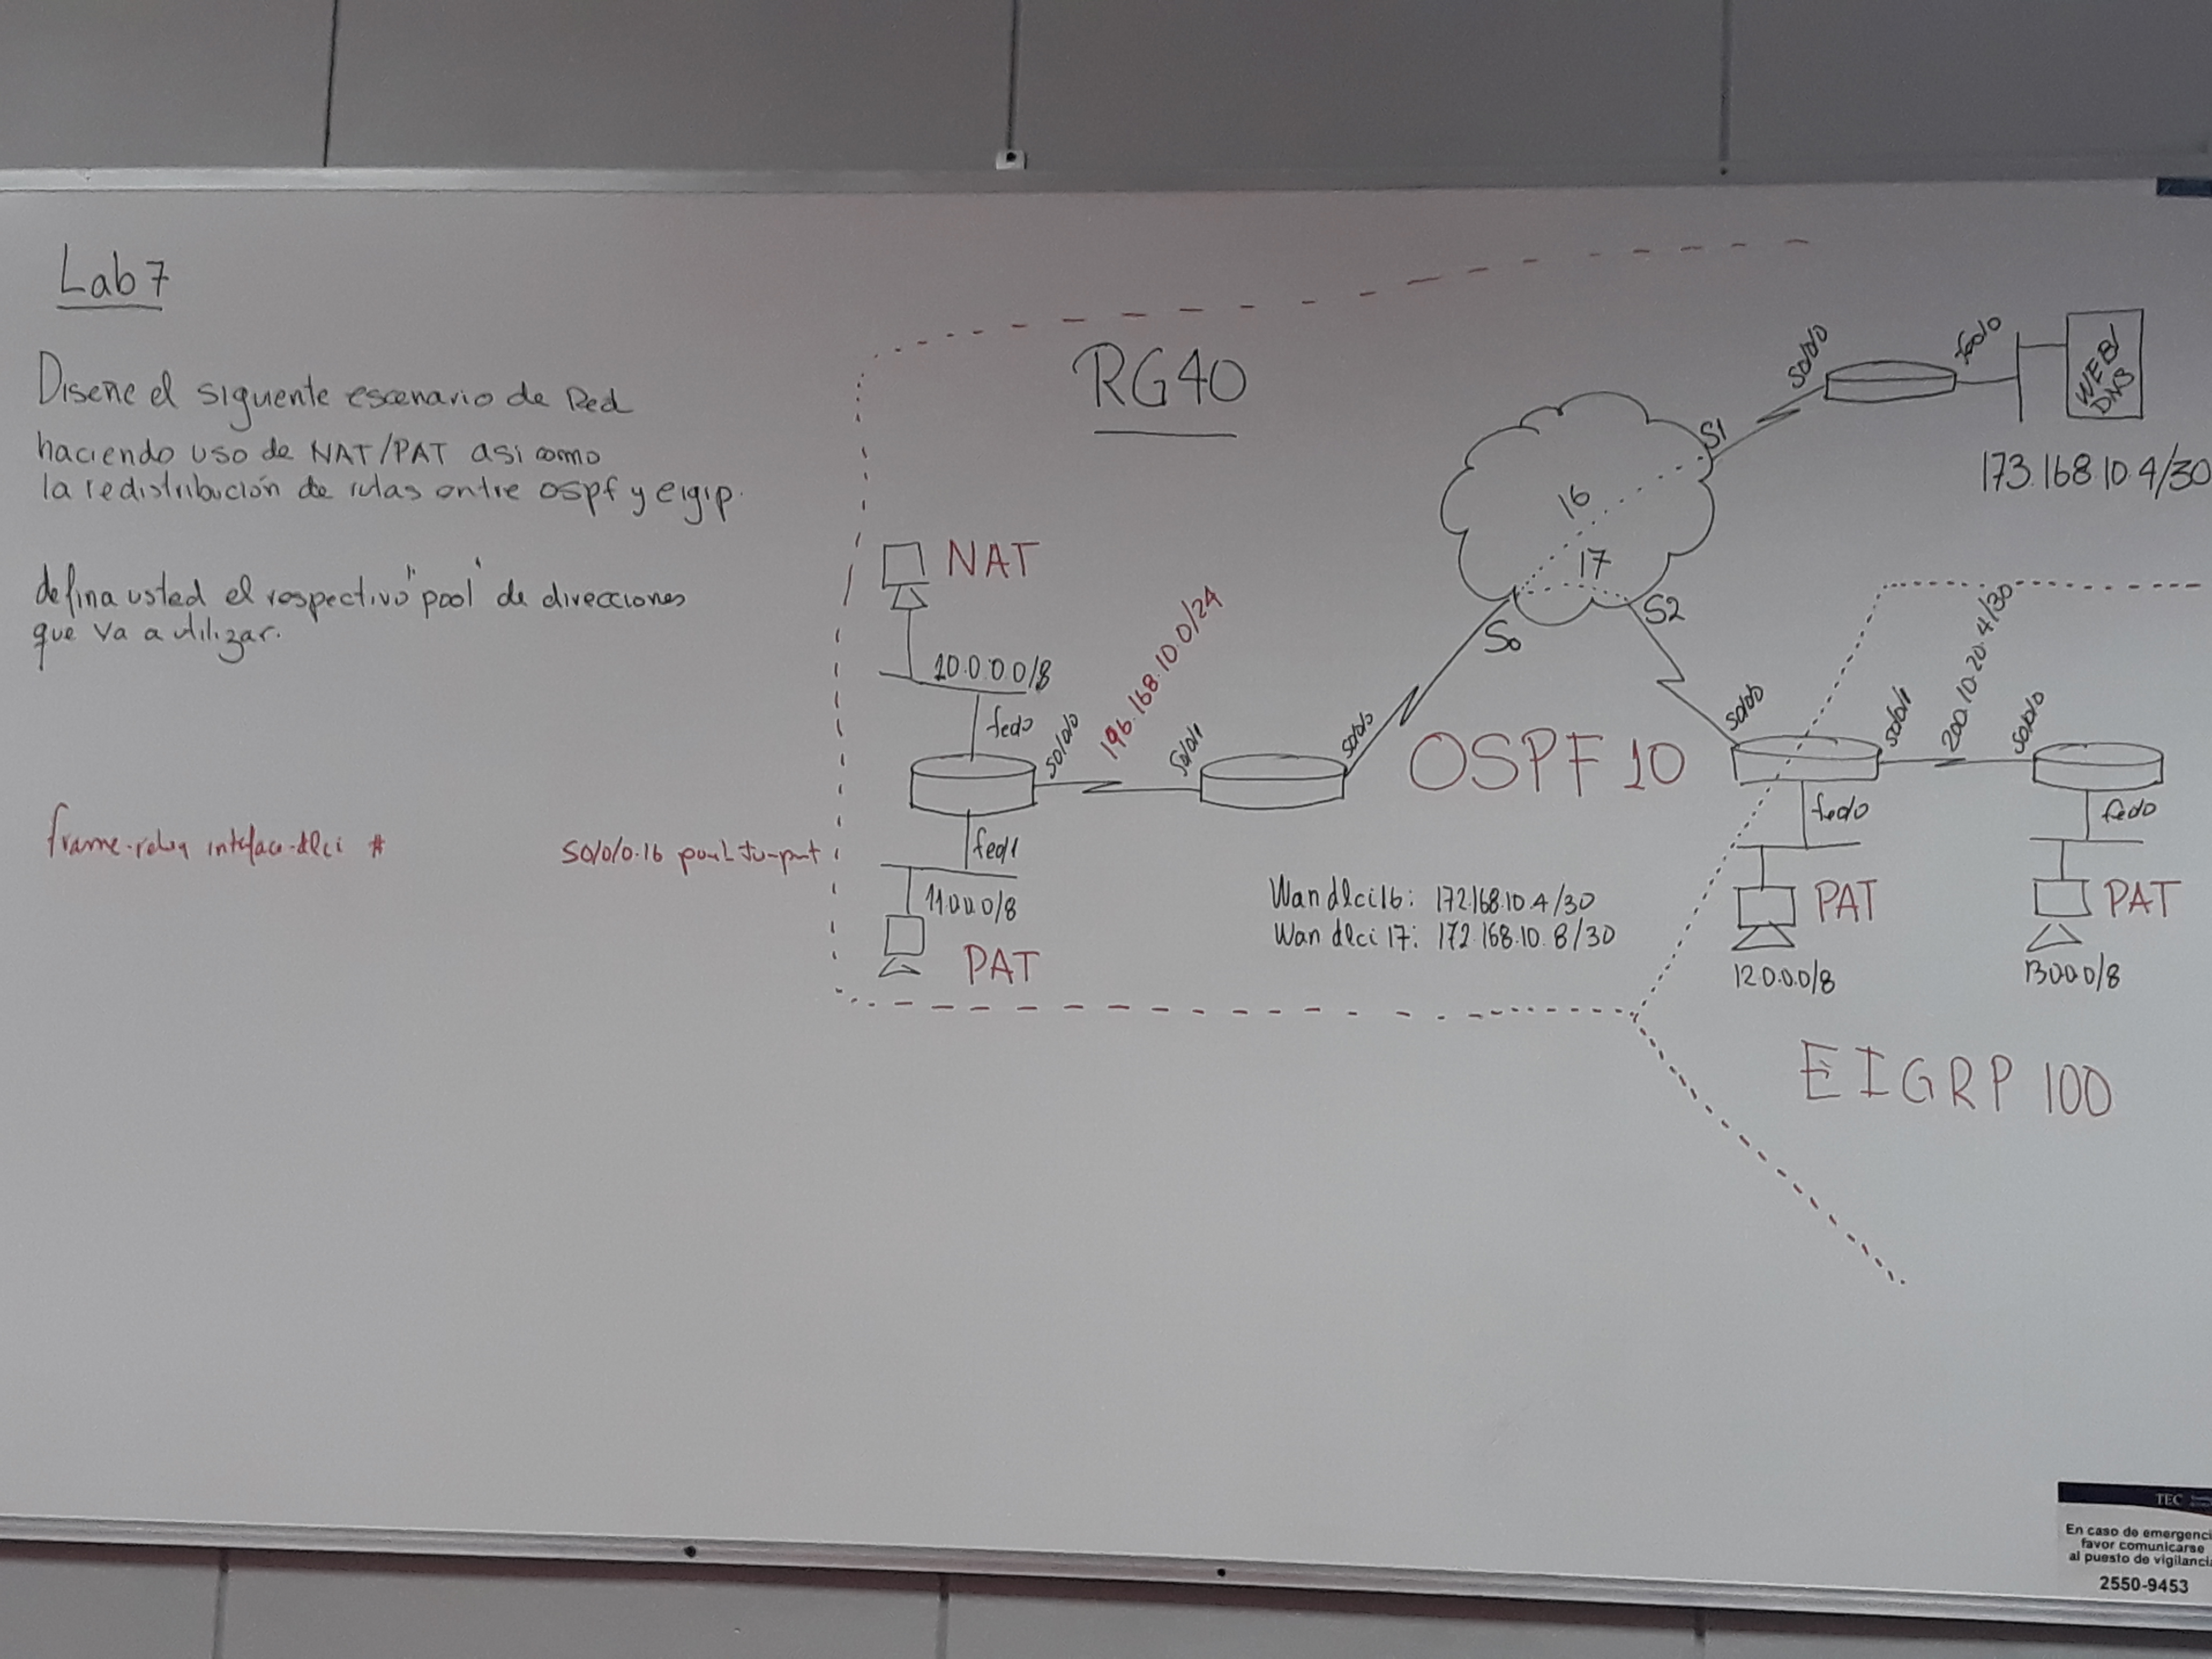 Lab 7
Diseñe el siguiente escenario de Red
haciendo uso de NAT/PAT asi como
la redistribución de rutas entre ospf y eigrp.
defina usted el respectivo "pool" de direcciones
que va a utilizar.
frame-relay interface-dlci #
S0/0/0.16 point-to-point
RG40
NAT
10.0.0.0/8
fe0/0
S0/0/0
196.168.10.0/24
S0/0/1
S0/0/0
fe0/1
11.0.0.0/8
PAT
S0
16
17
S1
S2
S0/0/0
fe0/0
WEB/
DNS
173.168.10.4/30
OSPF 10
Wan dlci 16: 172.168.10.4/30
Wan dlci 17: 172.168.10.8/30
S0/0/0
S0/0/1
200.10.20.4/30
S0/0/0
fe0/0
PAT
12.0.0.0/8
fe0/0
PAT
13.0.0.0/8
EIGRP 100
TEC
En caso de emergenci
favor comunicarse
al puesto de vigilancia
2550-9453